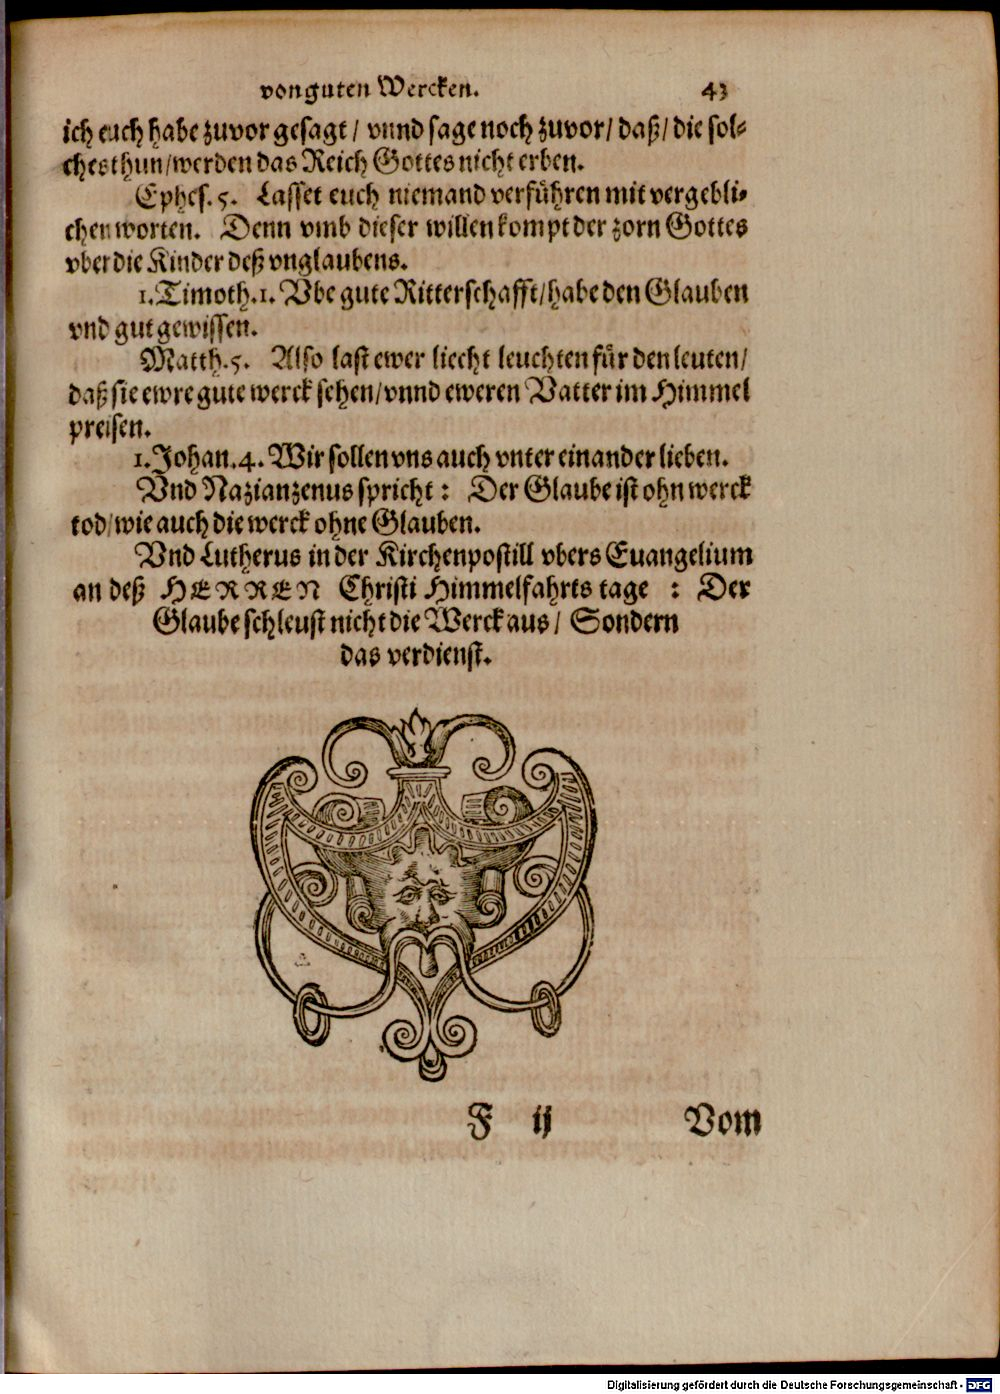 von guten Wercken. 43
ich euch habe zuvor gesagt / vnnd sage noch zuvor / daß / die sol-
ches thun / werden das Reich Gottes nicht erben.
Ephes. 5. Lasset euch niemand verführen mit vergebli-
chen worten. Denn vmb dieser willen kompt der zorn Gottes
vber die Kinder deß vnglaubens.
1. Timoth. 1. Vbe gute Ritterschafft / habe den Glauben
vnd gut gewissen.
Matth. 5. Also last ewer liecht leuchten für den leuten /
daß sie ewre gute werck sehen / vnnd eweren Vatter im Himmel
preisen.
1. Johan. 4. Wir sollen vns auch vnter einander lieben.
Vnd Nazianzenus spricht : Der Glaube ist ohn werck
tod / wie auch die werck ohne Glauben.
Vnd Lutherus in der Kirchenpostill vbers Euangelium
an deß HERREN Christi Himmelfahrts tage : Der
Glaube schleust nicht die Werck aus / Sondern
das verdienst.
F ij Vom
Digitalisierung gefördert durch die Deutsche Forschungsgemeinschaft - DFG